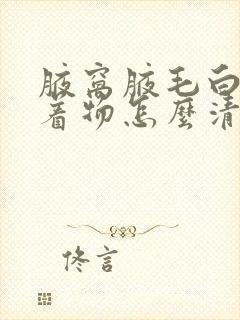 腋窩腋毛白
着物怎麼清
佟言